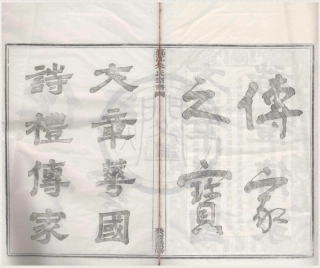 傳家
之寶
文章華國
詩禮傳家